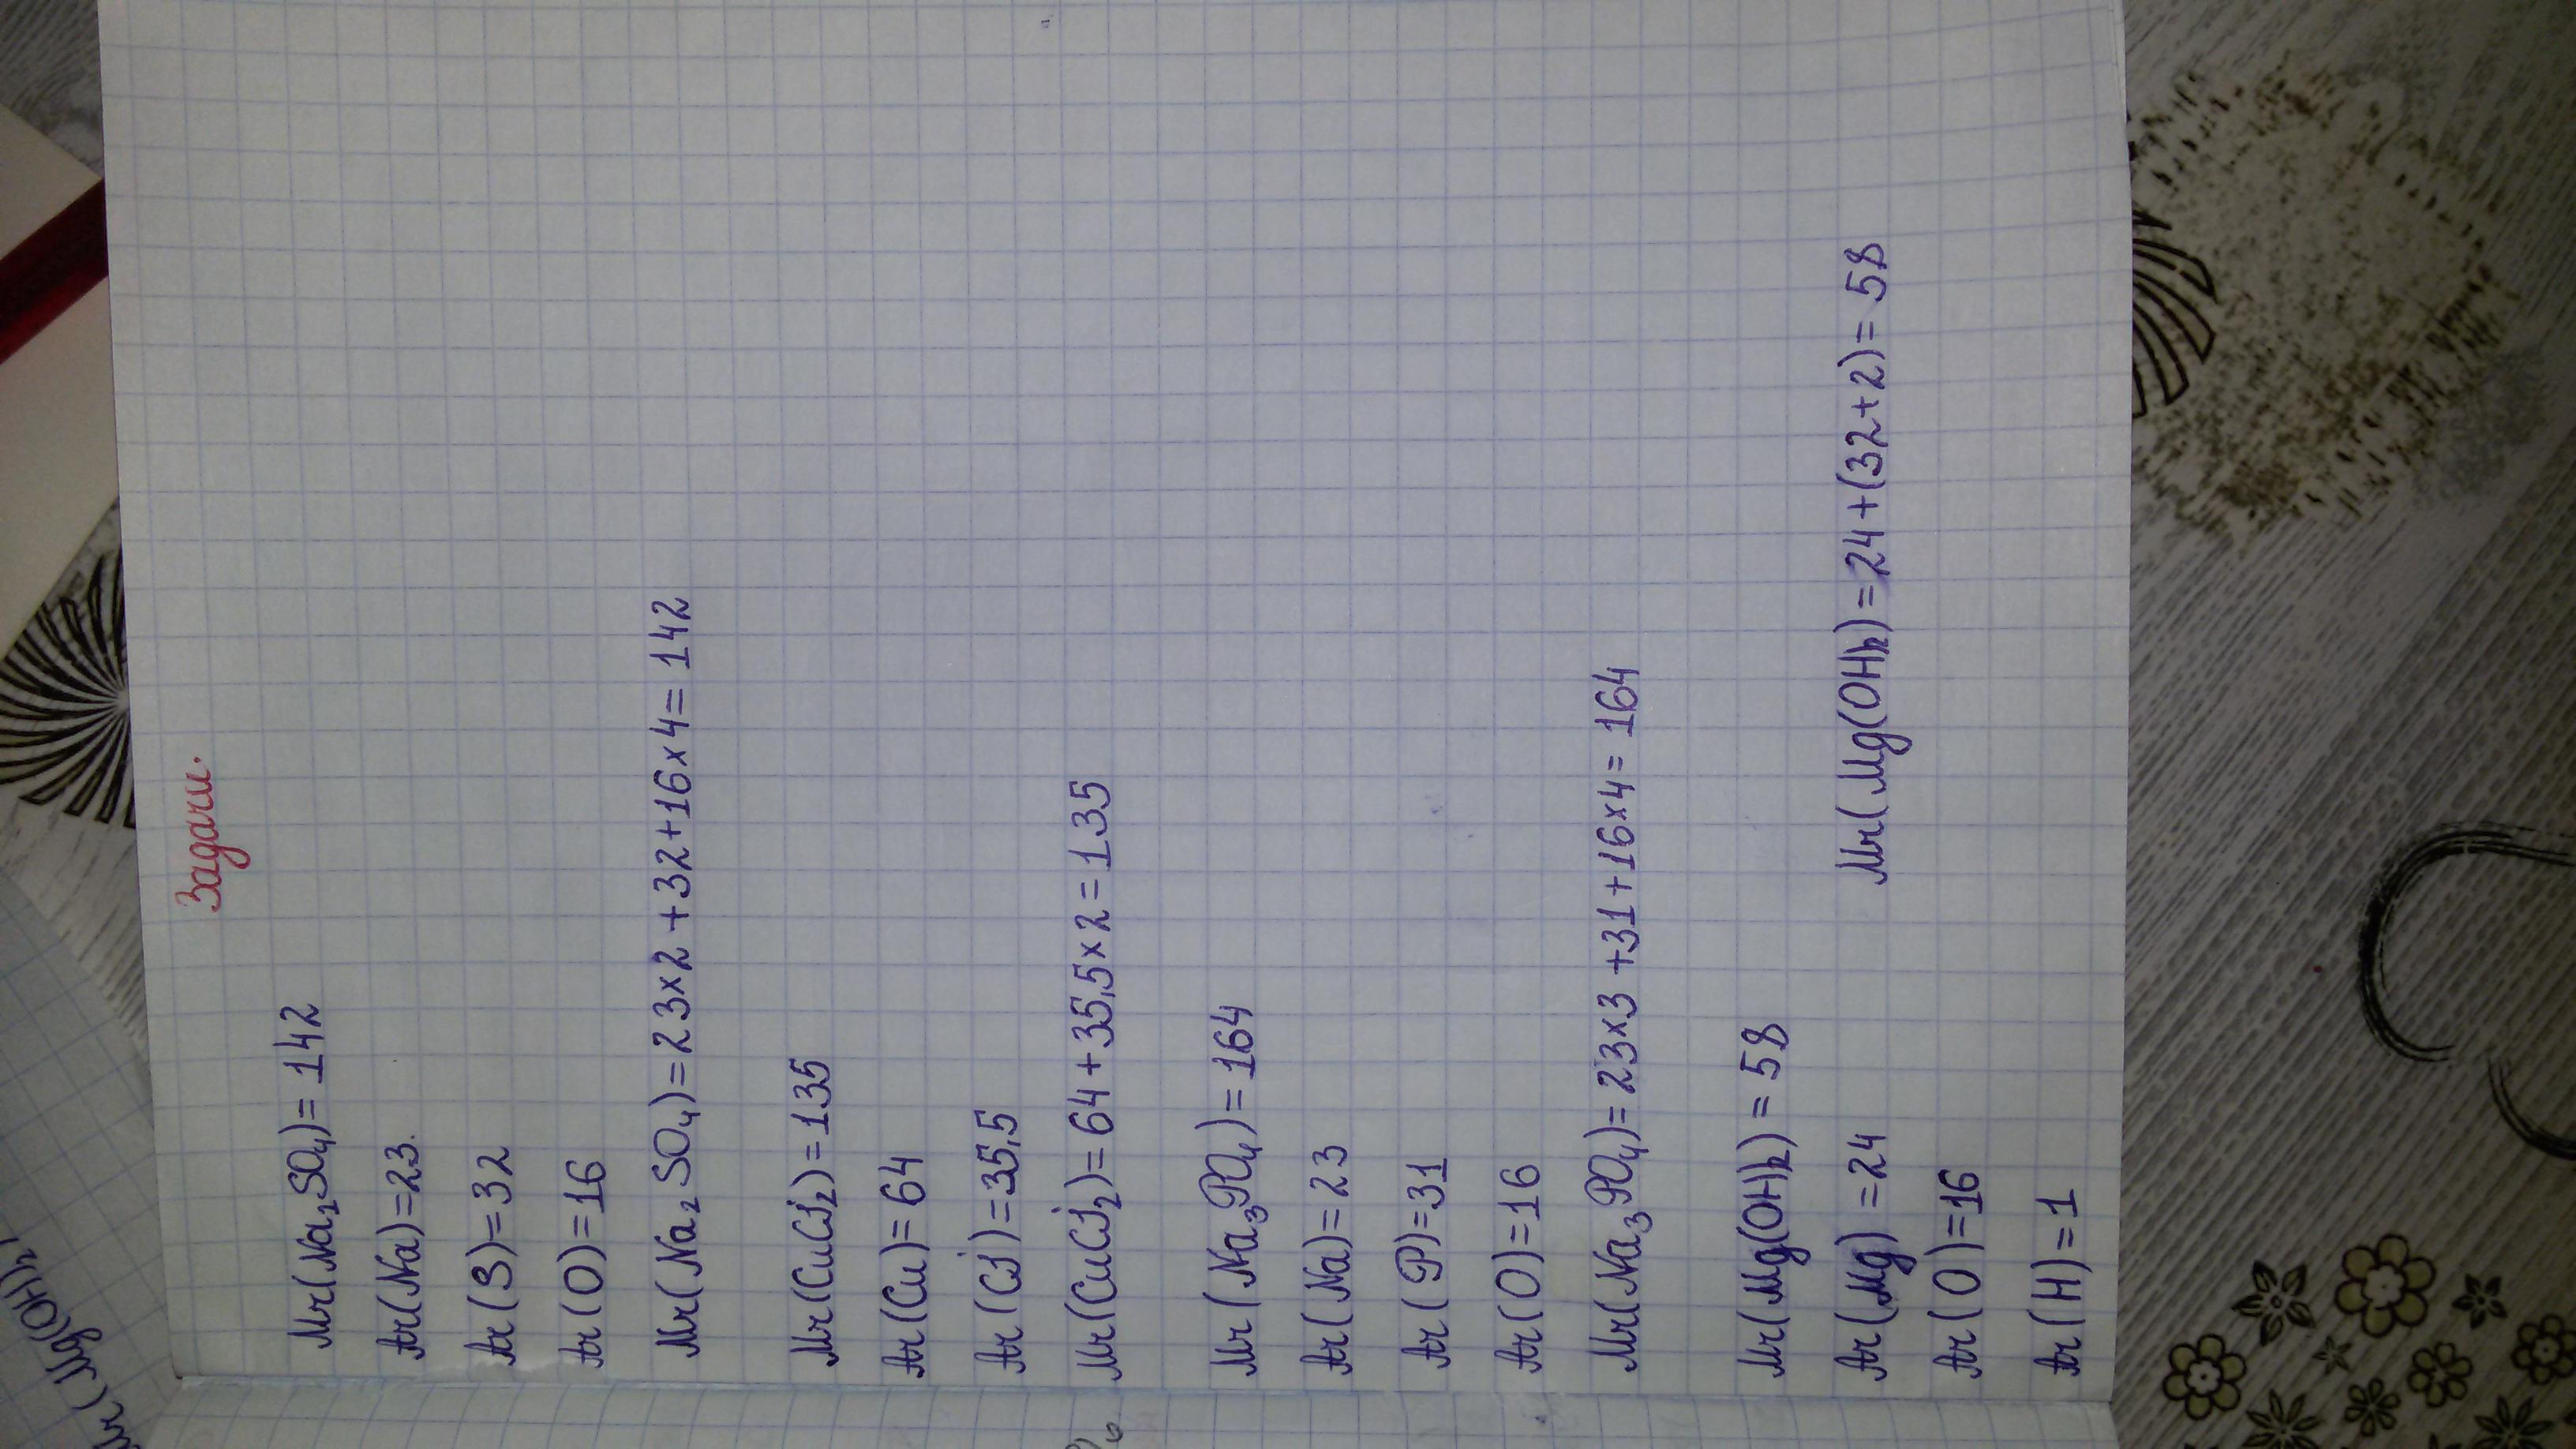 Задачи.
Mr(Na₂SO₄)=142
Ar(Na)=23.
Ar(S)=32
Ar(O)=16
Mr(Na₂SO₄)=23x2+32+16x4=142
Mr(CuCl₂)=135
Ar(Cu)=64
Ar(Cl)=35,5
Mr(CuCl₂)=64+35,5x2=135
Mr(Na₃PO₄)=164
Ar(Na)=23
Ar(P)=31
Ar(O)=16
Mr(Na₃PO₄)=23x3+31+16x4=164
Mr(Mg(OH)₂)=58
Ar(Mg)=24 Mr(Mg(OH)₂)=24+(32+2)=58
Ar(O)=16
Ar(H)=1
Mr(Mg(OH)₂)